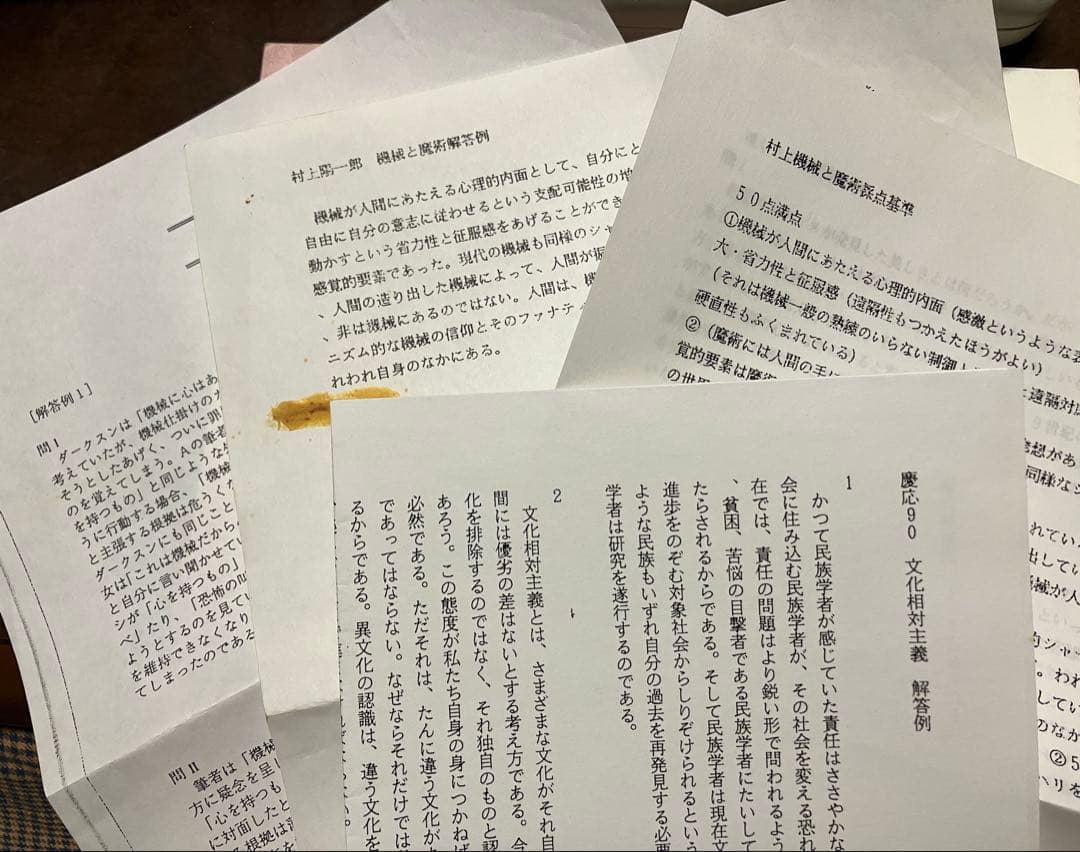 [解答例1]
問I
ダークスンは「機械に心はあ
考えていたが、機械仕掛けの
そうとしたあげく、ついに罪
のを覚えてしまう。Aの筆者
を持つもの」と同じような
うに行動する場合、「機械
と主張する根拠は危うくな
ダークスンにも同じこと
女は「これは機械だから
と自分に言い聞かせてい
シが「心を持つもの」
べ」たり、「恐怖の叫
ようとするのを見てい
を維持できなくなり
てしまったのである
問II
筆者は「機械
方に疑念を呈
「心を持つも
に対面したと
村上陽一郎 機械と魔術解答例
機械が人間にあたえる心理的内面として、自分にと
自由に自分の意志に従わせるという支配可能性の増
動かすという省力性と征服感をあげることができ
感覚的要素であった。現代の機械も同様のシャ
、人間の造り出した機械によって、人間が振
、非は機械にあるのではない。人間は、機
ニズム的な機械の信仰とそのファナティ
れわれ自身のなかにある。
村上機械と魔術採点基準
50点満点
①機械が人間にあたえる心理的内面（感激というような
大・省力性と征服感（遠隔性もつかえたほうがよい）
（それは機械一般の熟練のいらない制御と
硬直性もふくまれている）
②（魔術には人間の手に
覚的要素は魔術
の世界
遠隔対
発想があ
同様なシ
れてい
出してい
機械が人
的シャー
。われ
のなか
②5
ハリを
慶応90 文化相対主義 解答例
1
かつて民族学者が感じていた責任はささやかな
会に住み込む民族学者が、その社会を変える恐れ
在では、責任の問題はより鋭い形で問われるよう
、貧困、苦悩の目撃者である民族学者にたいして
たらされるからである。そして民族学者は現在文
進歩をのぞむ対象社会からしりぞけられるという
ような民族もいずれ自分の過去を再発見する必要
学者は研究を遂行するのである。
2
文化相対主義とは、さまざまな文化がそれ自
間には優劣の差はないとする考え方である。今
化を排除するのではなく、それ独自のものと認
あろう。この態度が私たち自身の身につかねば
必然である。ただそれは、たんに違う文化が
であってはならない。なぜならそれだけでは
るからである。異文化の認識は、違う文化を